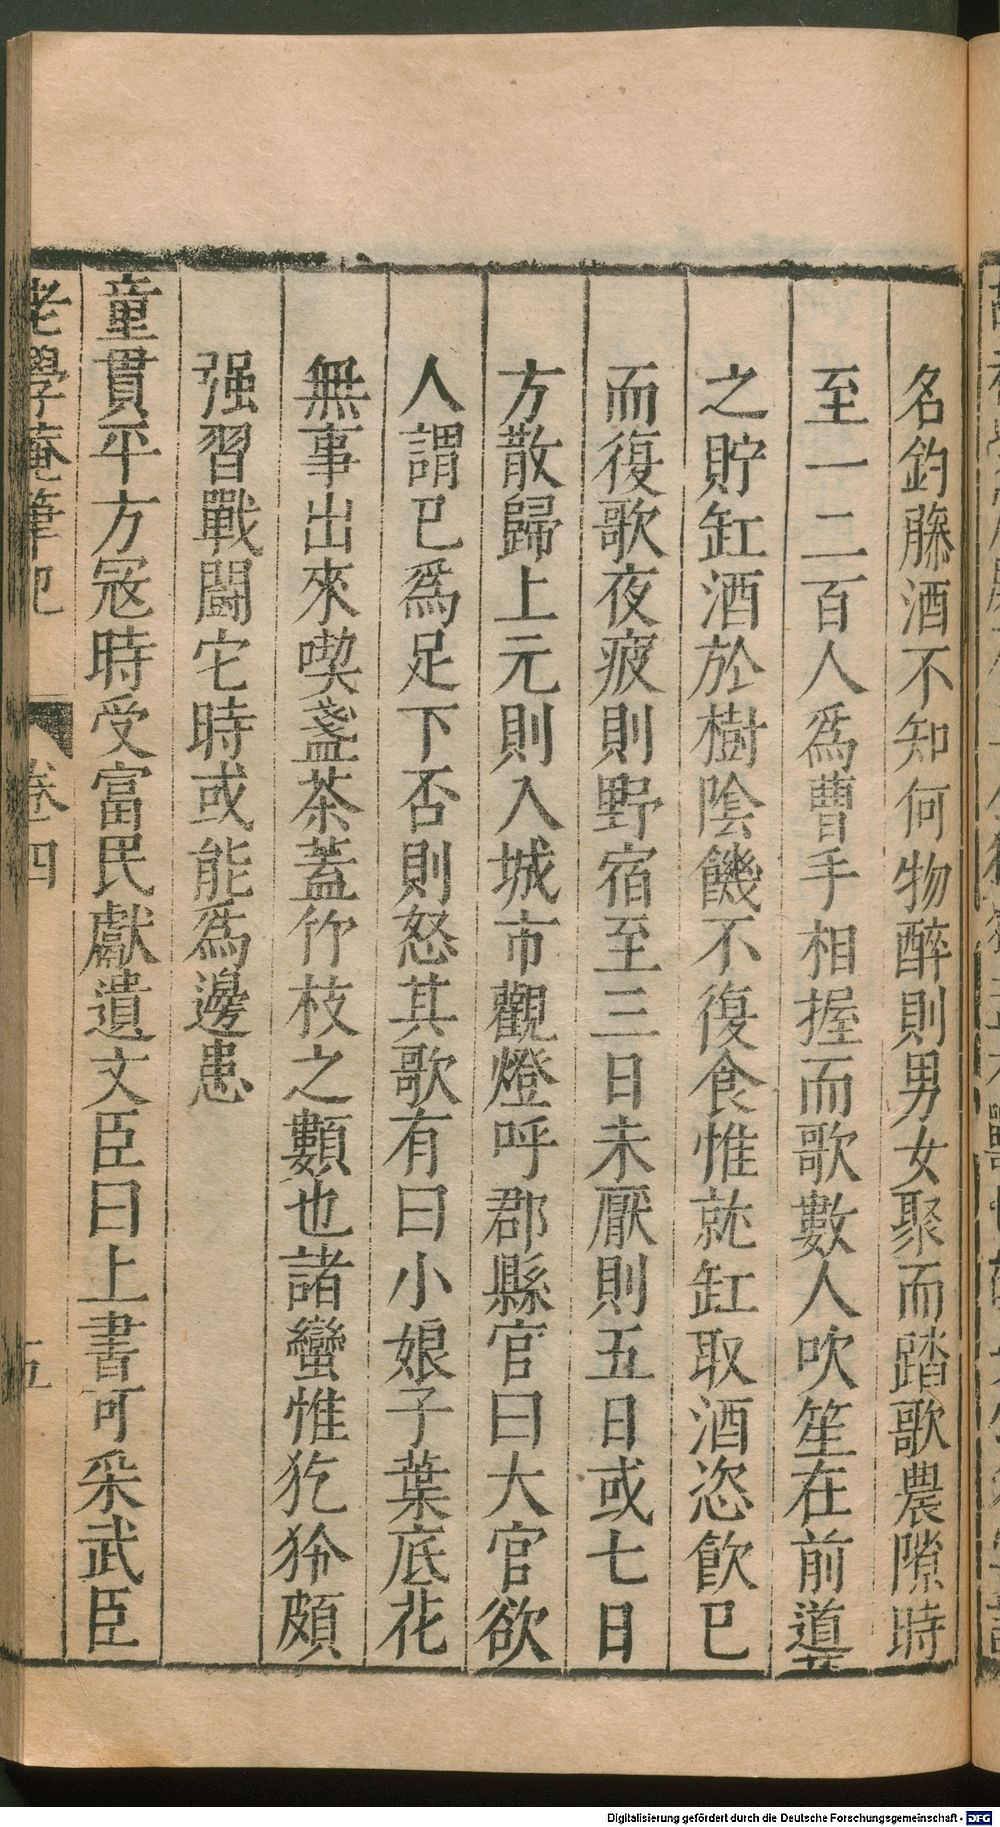 名鈞藤酒不知何物醉則男女聚而踏歌農隙時
至一二百人為曹手相握而歌數人吹笙在前道
之貯缸酒於樹陰饑不復食惟就缸取酒恣飲已
而復歌夜疲則野宿至三日未厭則五日或七日
方散歸上元則入城市觀燈呼郡縣官曰大官欲
人謂已為足下否則怒其歌有曰小娘子葉底花
無事出來喫盞茶蓋竹枝之類也諸蠻惟犵狑頗
强習戰鬭它時或能為邊患
童貫平方冦時受富民獻遺文臣曰上書可采武臣
老學庵筆記 卷四 五
Digitalisierung gefördert durch die Deutsche Forschungsgemeinschaft - DFG